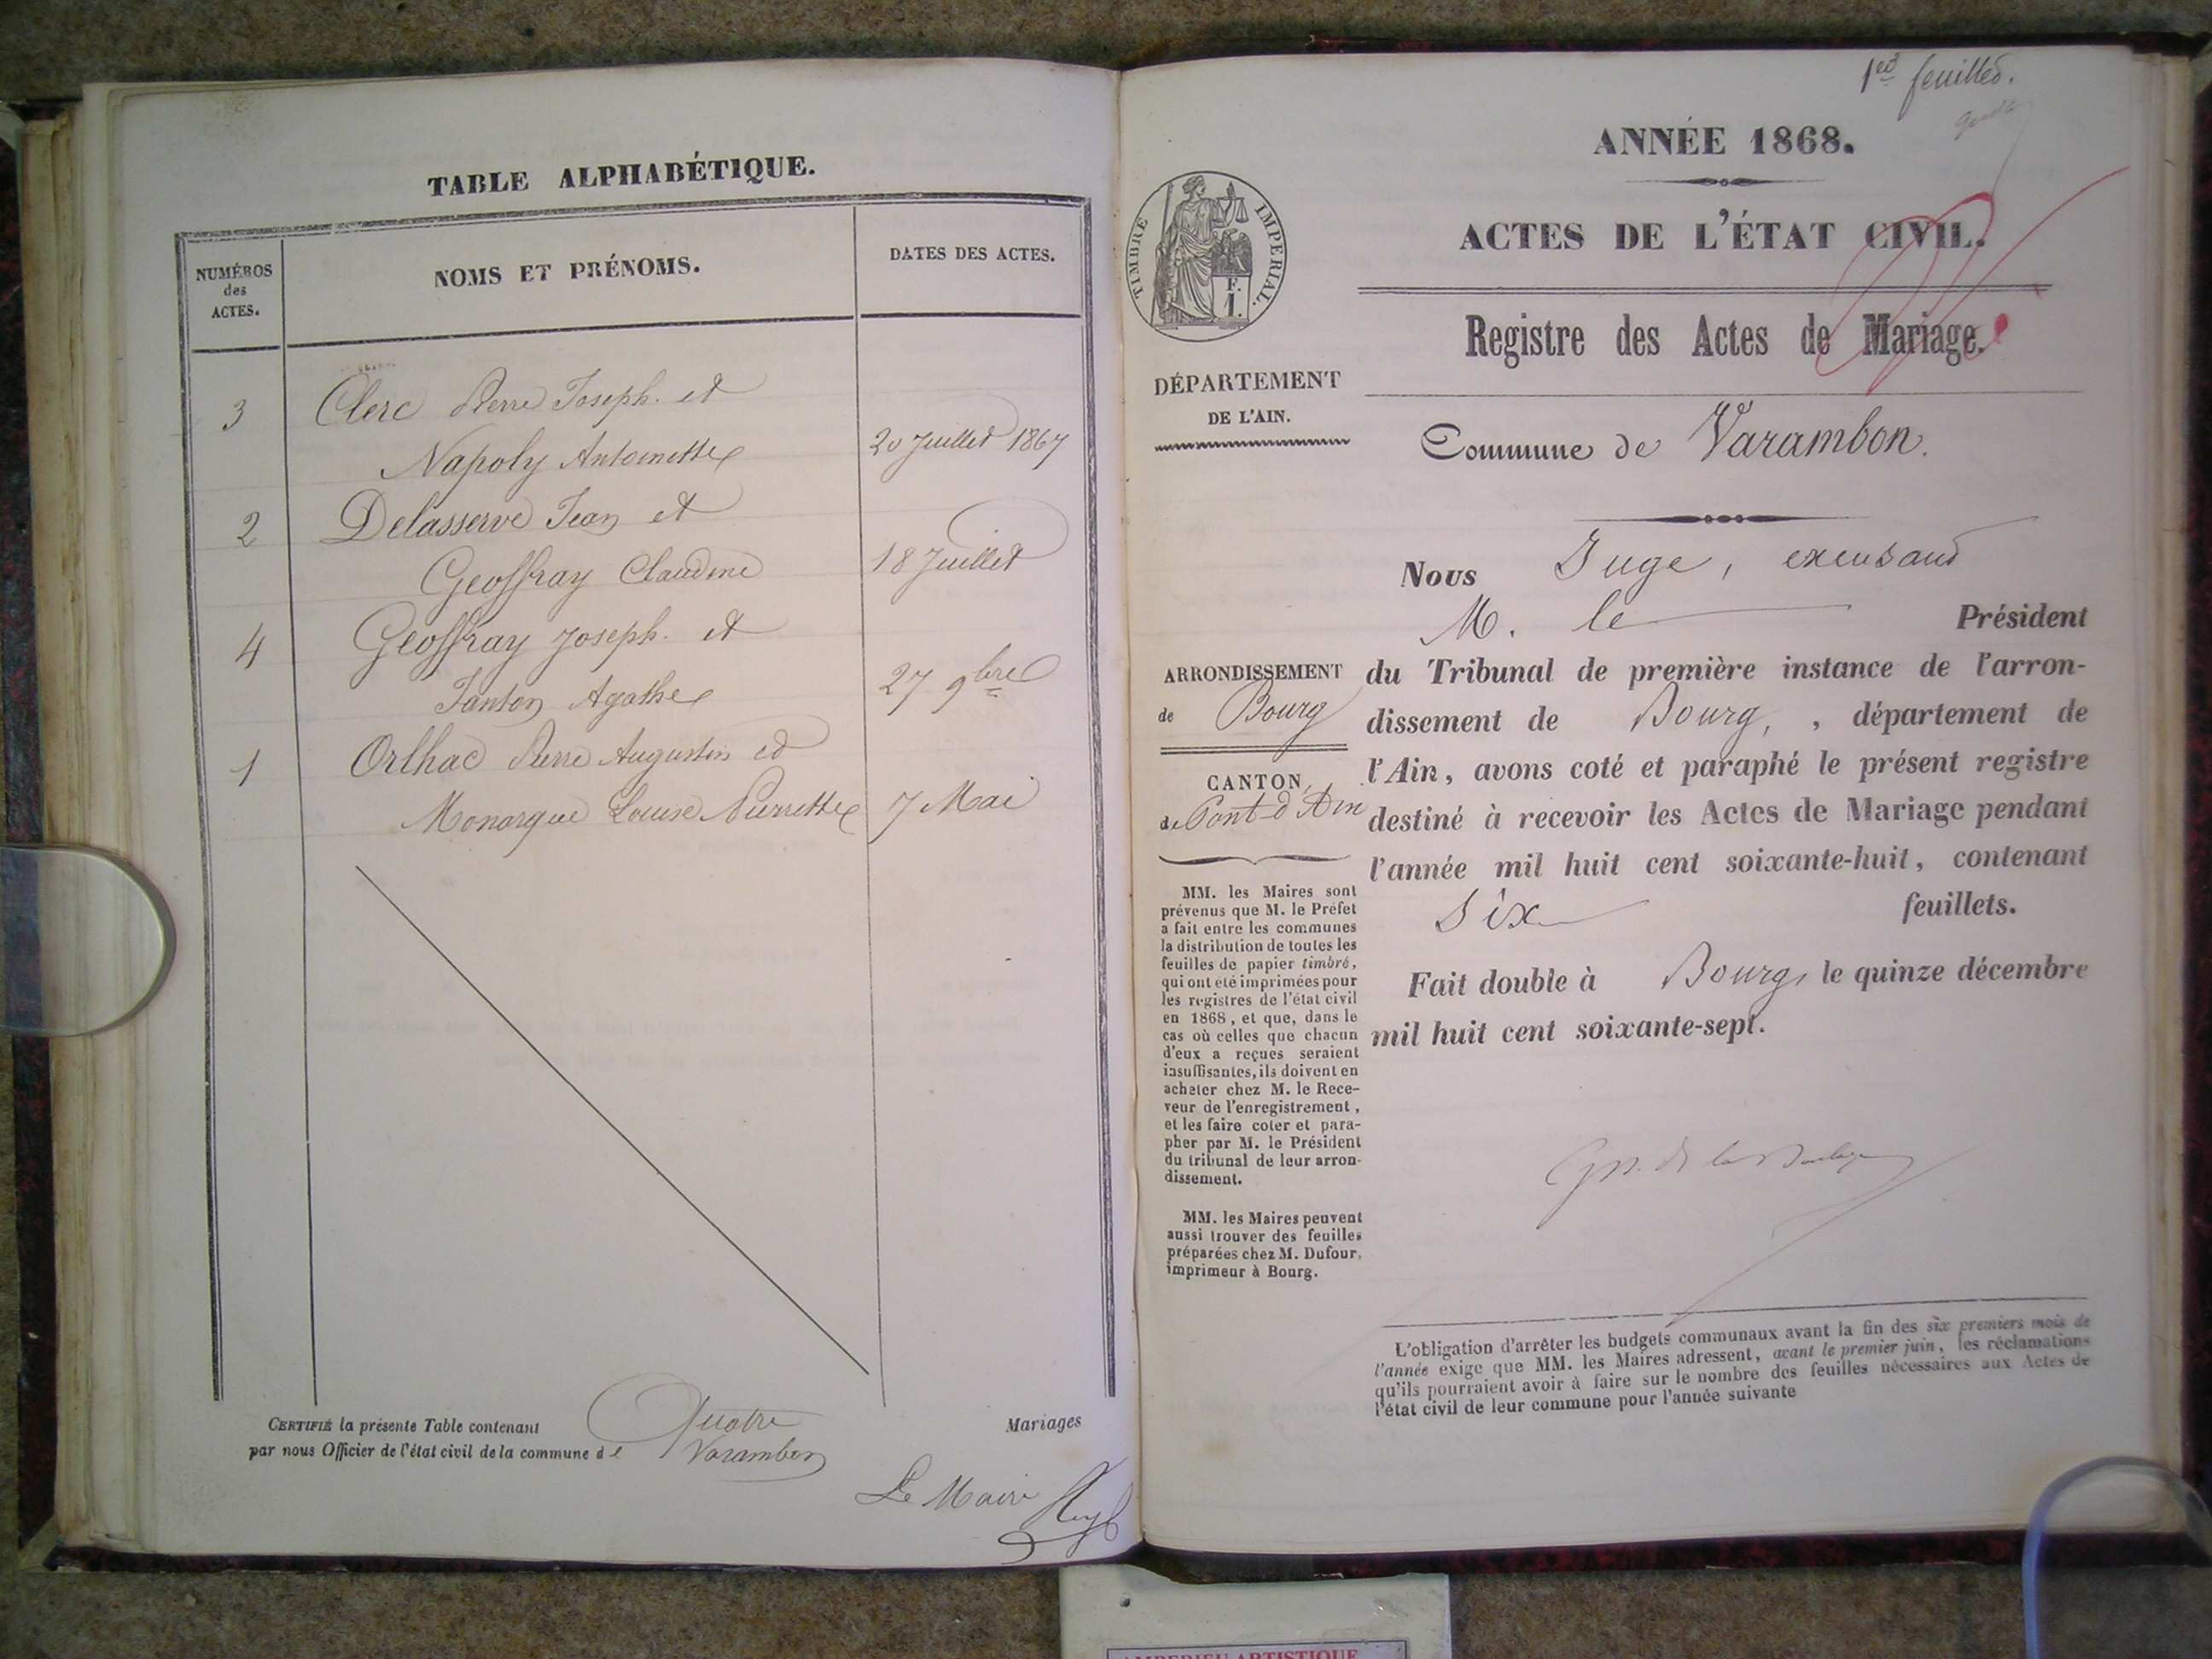 TABLE ALPHABÉTIQUE.
NUMÉROS
des
ACTES.
NOMS ET PRÉNOMS.
DATES DES ACTES.
3 Clerc Pierre Joseph et
Napoly Antoinette 20 Juillet 1867
2 Delasserve Jean et
Geoffray Claudine 18 Juillet
4 Geoffray Joseph et
Tanton Agathe 27 9bre
1 Orlhac Pierre Augustin et
Monarque Louise Pierrette 7 Mai
CERTIFIÉ la présente Table contenant Quatre Mariages
par nous Officier de l'état civil de la commune de Varambon
Le Maire
1er feuillet.
ANNÉE 1868.
ACTES DE L'ÉTAT CIVIL.
Registre des Actes de Mariage.
TIMBRE IMPERIAL.
F.
1.
DÉPARTEMENT
DE L'AIN.
Commune de Varambon.
Nous Juge, excusant
M. le Président
du Tribunal de première instance de l'arron-
dissement de Bourg, , département de
l'Ain, avons coté et paraphé le présent registre
destiné à recevoir les Actes de Mariage pendant
l'année mil huit cent soixante-huit, contenant
Six feuillets.
Fait double à Bourg, le quinze décembre
mil huit cent soixante-sept.
ARRONDISSEMENT
de Bourg
CANTON
de Pont-d'Ain
MM. les Maires sont
prévenus que M. le Préfet
a fait entre les communes
la distribution de toutes les
feuilles de papier timbré,
qui ont été imprimées pour
les registres de l'état civil
en 1868, et que, dans le
cas où celles que chacun
d'eux a reçues seraient
insuffisantes, ils doivent en
acheter chez M. le Rece-
veur de l'enregistrement,
et les faire coter et para-
pher par M. le Président
du tribunal de leur arron-
dissement.
MM. les Maires peuvent
aussi trouver des feuilles
préparées chez M. Dufour,
imprimeur à Bourg.
L'obligation d'arrêter les budgets communaux avant la fin des six premiers mois de
l'année exige que MM. les Maires adressent, avant le premier juin, les réclamations
qu'ils pourraient avoir à faire sur le nombre des feuilles nécessaires aux Actes de
l'état civil de leur commune pour l'année suivante
AMBERIEU ARTISTIQUE